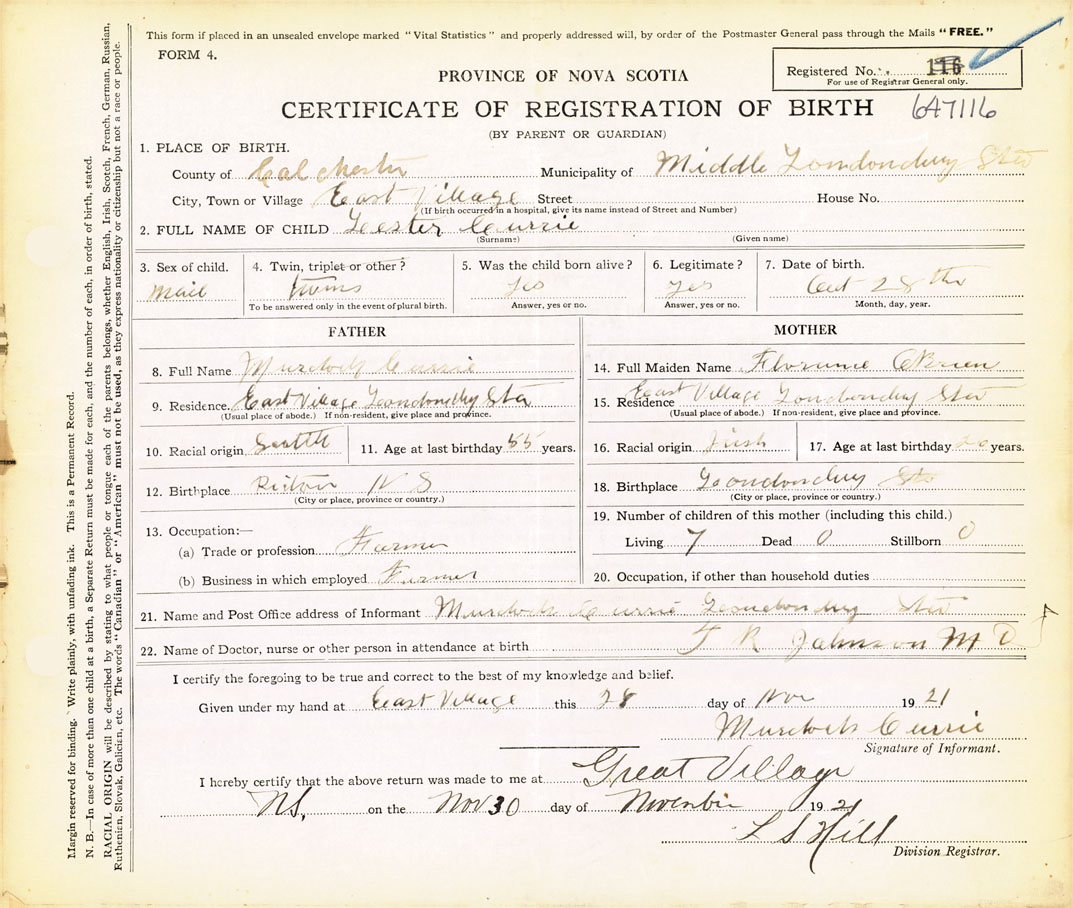 This form if placed in an unsealed envelope marked "Vital Statistics" and properly addressed will, by order of the Postmaster General pass through the Mails "FREE."
FORM 4.
PROVINCE OF NOVA SCOTIA
Registered No. 116
For use of Registrar General only.
CERTIFICATE OF REGISTRATION OF BIRTH
647116
(BY PARENT OR GUARDIAN)
1. PLACE OF BIRTH.
County of Colchester Municipality of Middle Londondery Sta
City, Town or Village East Village Street House No.
(If birth occurred in a hospital, give its name instead of Street and Number)
2. FULL NAME OF CHILD Lester Currie
(Surname) (Given name)
3. Sex of child. 4. Twin, triplet or other? 5. Was the child born alive? 6. Legitimate? 7. Date of birth.
Mail twins yes yes Oct 28 th
To be answered only in the event of plural birth. Answer, yes or no. Answer, yes or no. Month, day, year.
FATHER
8. Full Name Murdock Currie
9. Residence. East Village Londondery Sta
(Usual place of abode.) If non-resident, give place and province.
10. Racial origin 11. Age at last birthday 55 years.
12. Birthplace Pictou N S
(City or place, province or country.)
13. Occupation:—
(a) Trade or profession Farmer
(b) Business in which employed Farmer
MOTHER
14. Full Maiden Name Florence OBrien
15. Residence East Village Londondery Sta
(Usual place of abode.) If non-resident, give place and province.
16. Racial origin Irish 17. Age at last birthday years.
18. Birthplace Londondery Sta
(City or place, province or country.)
19. Number of children of this mother (including this child.)
Living 7 Dead 0 Stillborn 0
20. Occupation, if other than household duties
21. Name and Post Office address of Informant Murdock Currie Londondery Sta
22. Name of Doctor, nurse or other person in attendance at birth T R Johnson M D
7
I certify the foregoing to be true and correct to the best of my knowledge and belief.
Given under my hand at East Village this 28 day of Nov 1921
Murdock Currie
Signature of Informant.
I hereby certify that the above return was made to me at Great Village
N.S. on the Nov 30 day of November 1921
L S Hill
Division Registrar.
Margin reserved for binding. Write plainly, with unfading ink. This is a Permanent Record.
N. B.—In case of more than one child at a birth, a Separate Return must be made for each, and the number of each, in order of birth, stated.
RACIAL ORIGIN will be described by stating to what people or tongue each of the parents belongs, whether English, Irish, Scotch, French, German, Russian,
Ruthenian, Slovak, Galician, etc. The words "Canadian" or "American" must not be used, as they express nationality or citizenship but not a race or people.